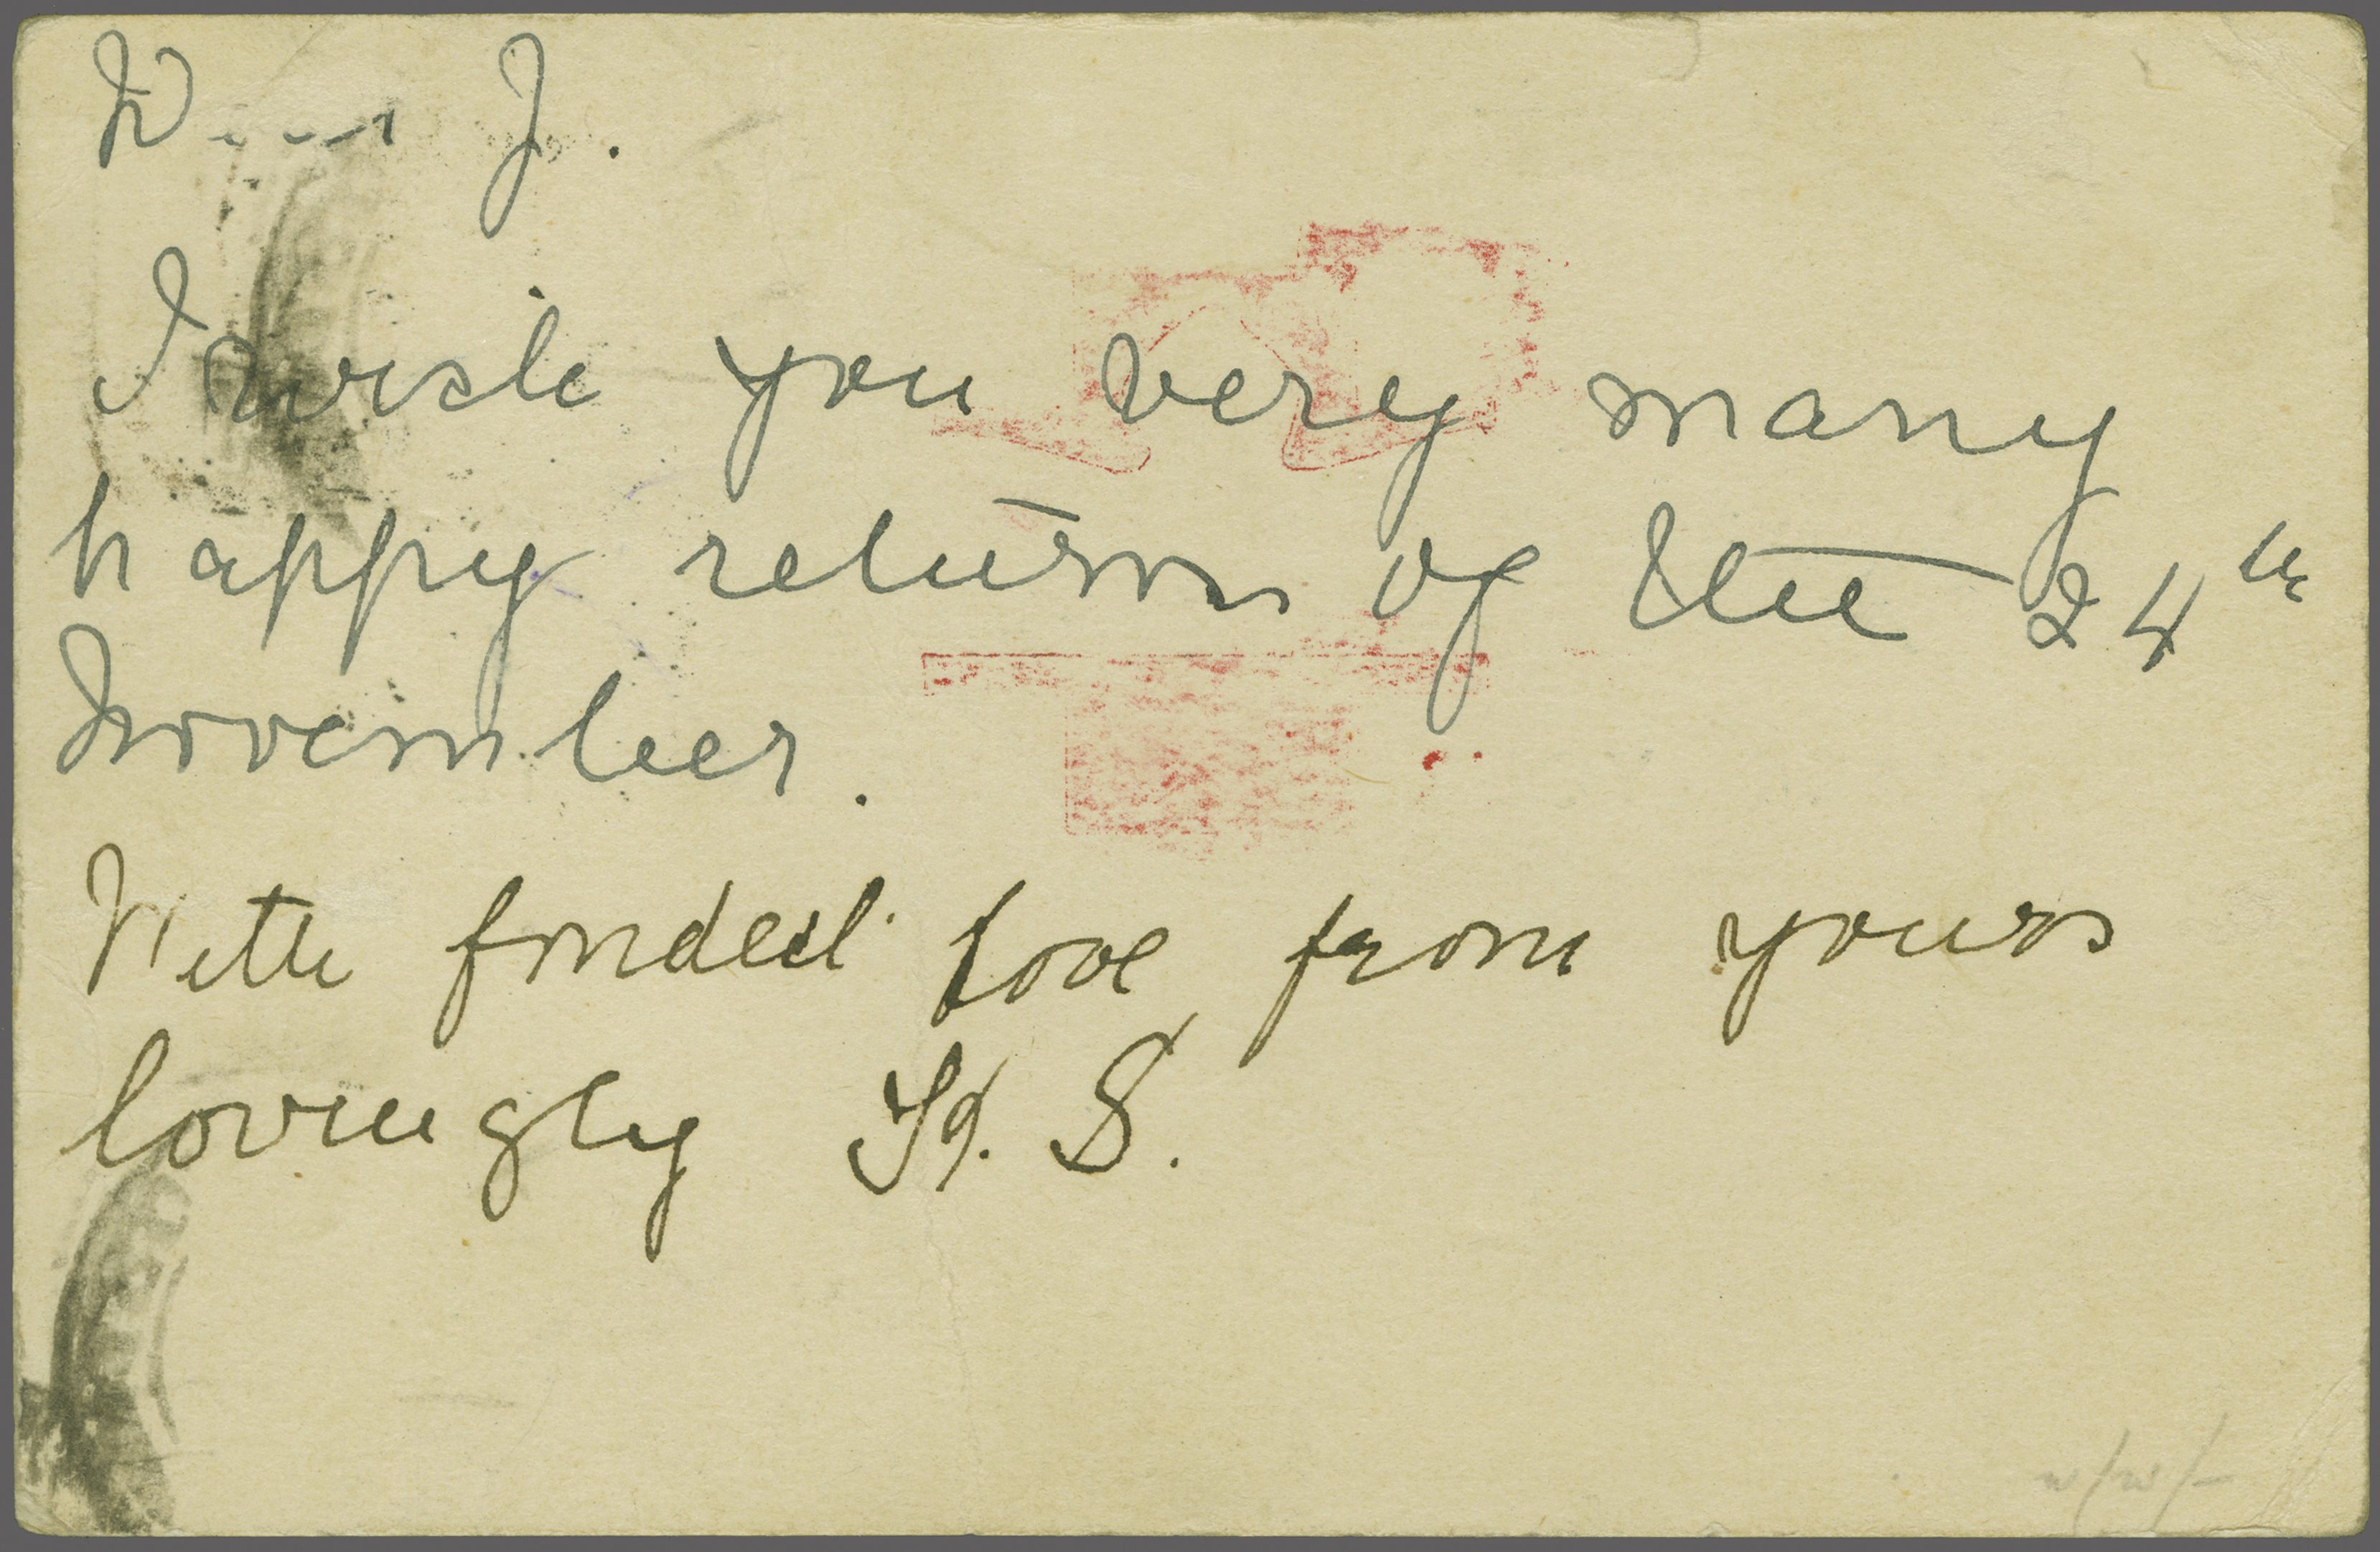 D---r J.
I wish you very many
happy returns of the 24th
November.
With fondest love from yours
lovingly H. S.